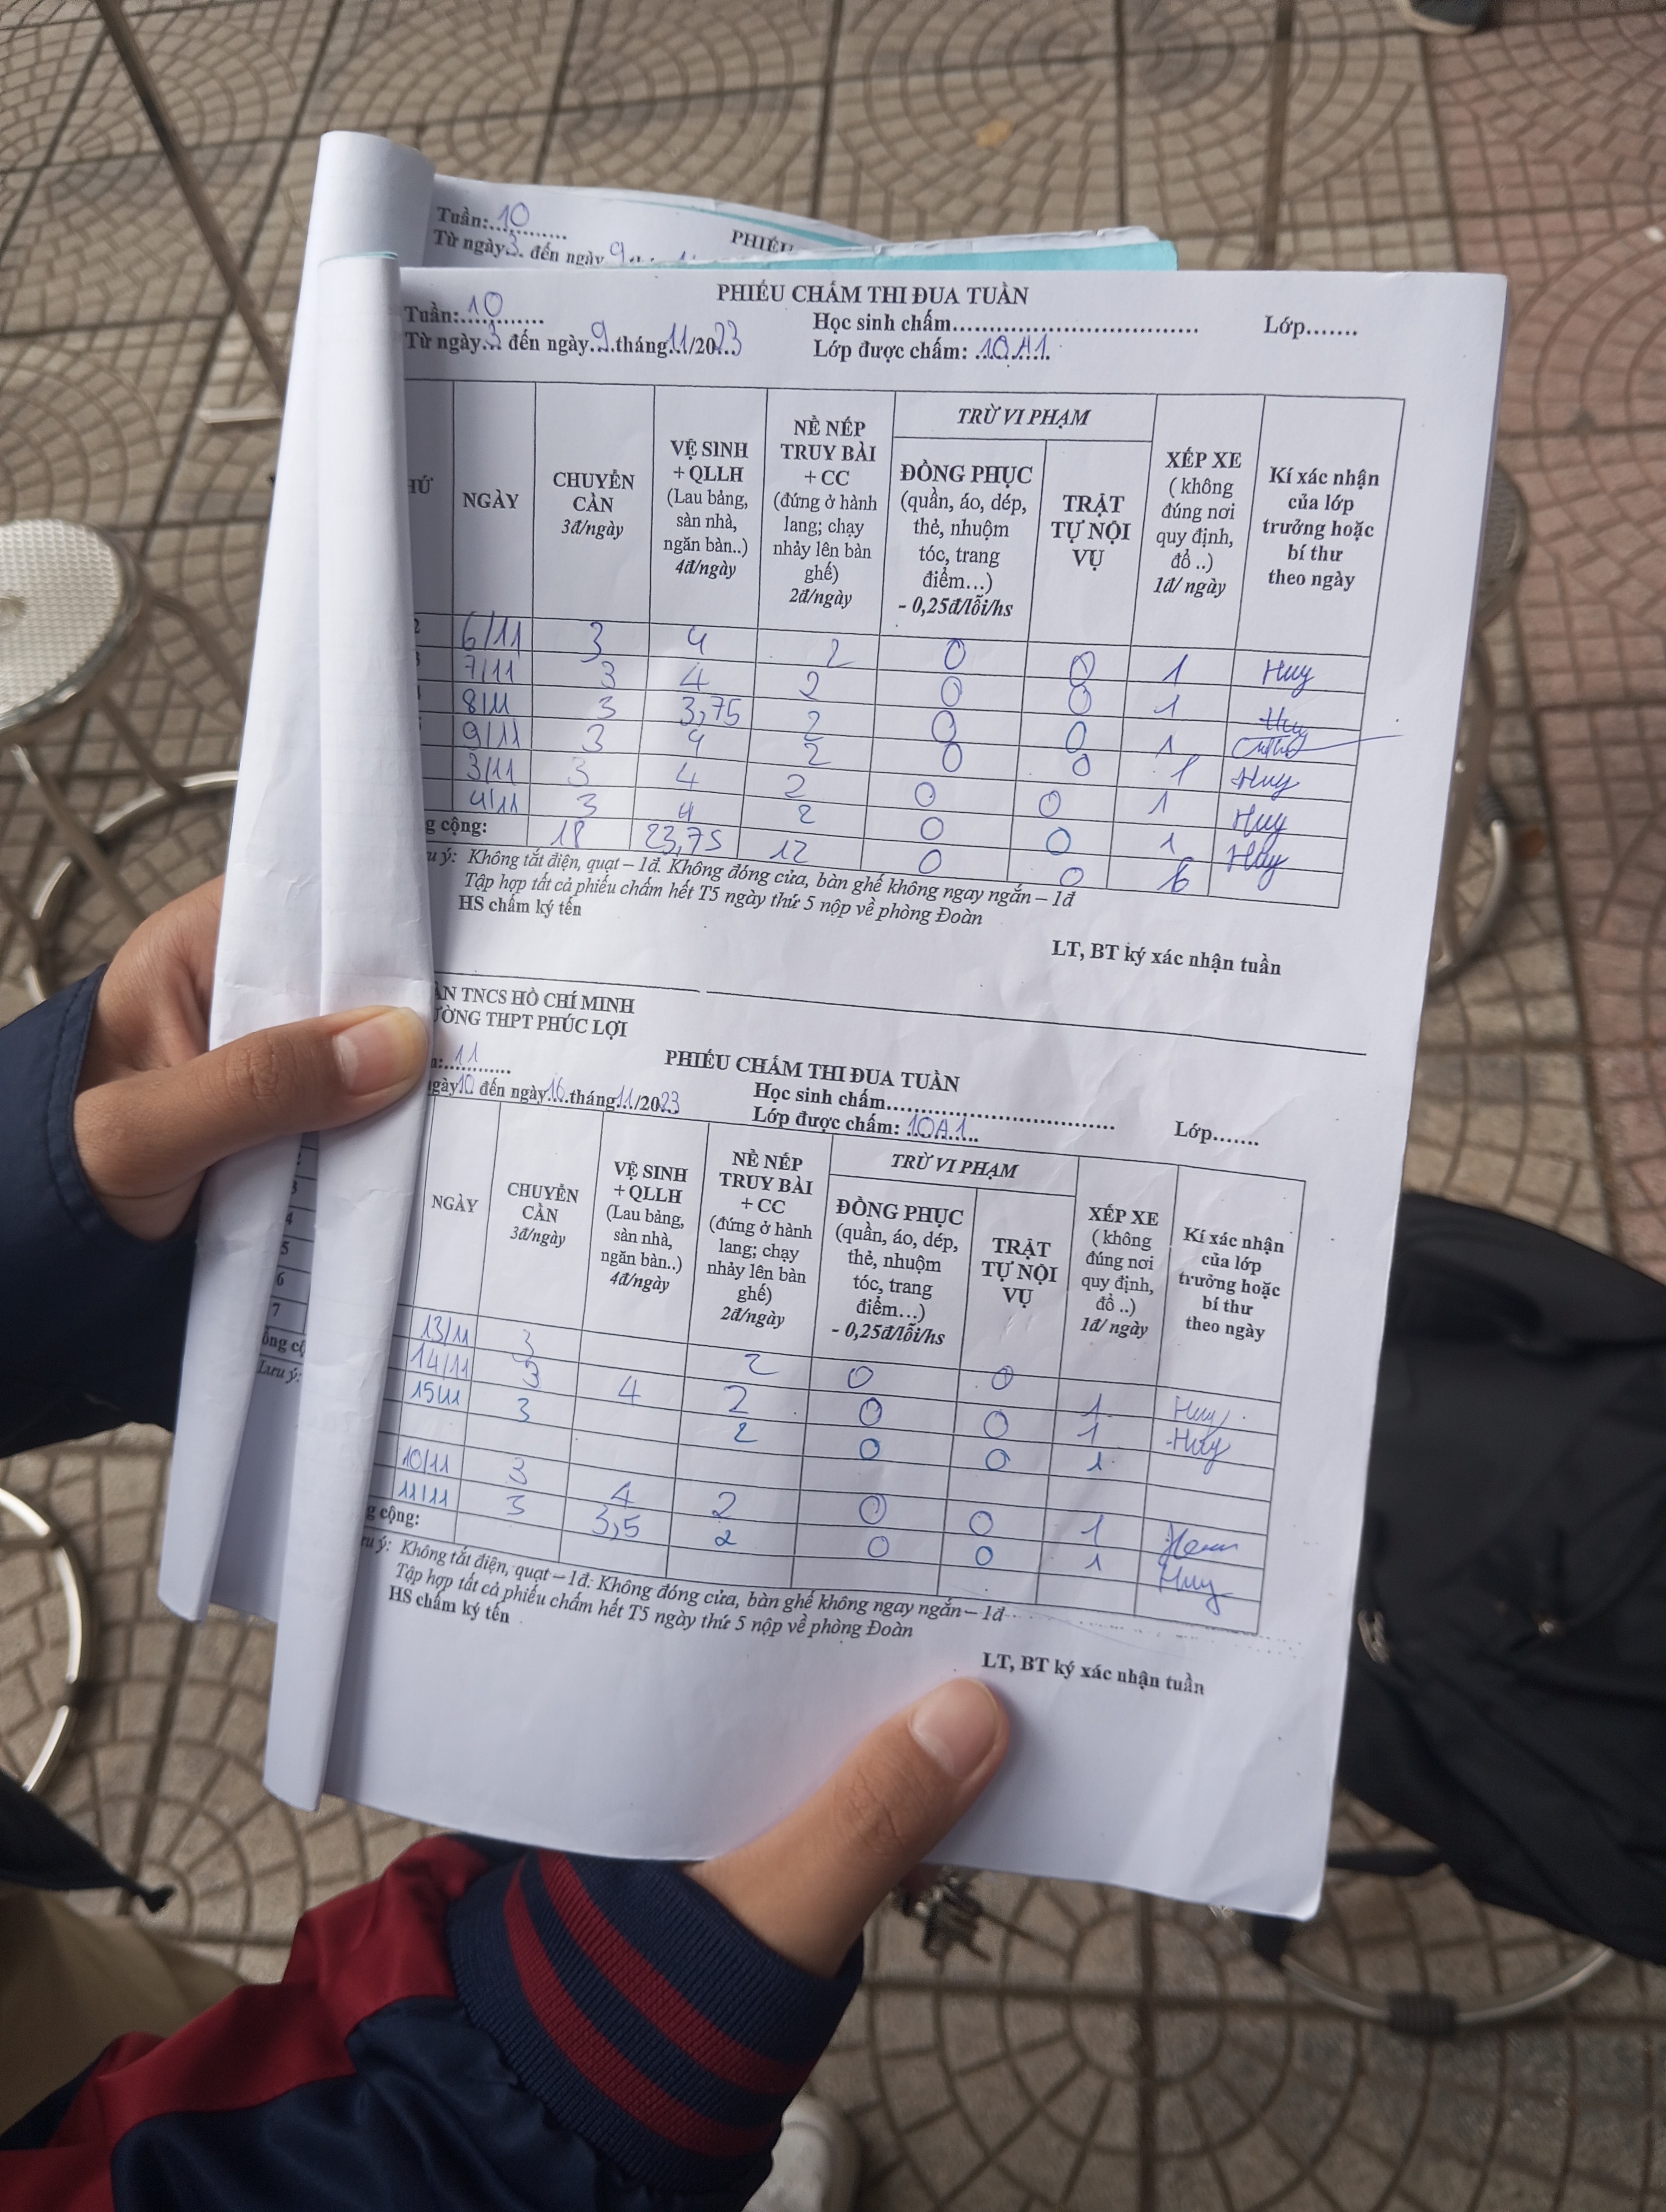 Tuần: 10
PHIẾU
Từ ngày 3 đến ngày 9
PHIẾU CHẤM THI ĐUA TUẦN
Tuần: 10
Học sinh chấm.................................. Lớp.......
Từ ngày 3 đến ngày 9 tháng 11/2023
Lớp được chấm: 10A1
NGÀY
CHUYÊN CẦN 3đ/ngày
VỆ SINH + QLLH (Lau bảng, sàn nhà, ngăn bàn..) 4đ/ngày
NỀ NẾP TRUY BÀI + CC (đứng ở hành lang; chạy nhảy lên bàn ghế) 2đ/ngày
TRỪ VI PHẠM
ĐỒNG PHỤC (quần, áo, dép, thẻ, nhuộm tóc, trang điểm…) - 0,25đ/lỗi/hs
TRẬT TỰ NỘI VỤ
XẾP XE ( không đúng nơi quy định, đổ ..) 1đ/ ngày
Kí xác nhận của lớp trưởng hoặc bí thư theo ngày
6/11 3 4 2 0 0 1 Huy
7/11 3 4 2 0 0 1
8/11 3 3,75 2 0 0 1
9/11 3 4 2 0 0 1 Huy
3/11 3 4 2 0 0 1 Huy
4/11 3 4 2 0 0 1 Huy
g cộng: 18 23,75 12 0 0 6
u ý: Không tắt điện, quạt – 1đ. Không đóng cửa, bàn ghế không ngay ngắn – 1đ
Tập hợp tất cả phiếu chấm hết T5 ngày thứ 5 nộp về phòng Đoàn
HS chấm ký tên
LT, BT ký xác nhận tuần
ÀN TNCS HỒ CHÍ MINH
ƯỜNG THPT PHÚC LỢI
PHIẾU CHẤM THI ĐUA TUẦN
n: 11
Học sinh chấm.................................. Lớp.......
gày 10 đến ngày 16 tháng 11/2023
Lớp được chấm: 10A1
NGÀY
CHUYÊN CẦN 3đ/ngày
VỆ SINH + QLLH (Lau bảng, sàn nhà, ngăn bàn..) 4đ/ngày
NỀ NẾP TRUY BÀI + CC (đứng ở hành lang; chạy nhảy lên bàn ghế) 2đ/ngày
TRỪ VI PHẠM
ĐỒNG PHỤC (quần, áo, dép, thẻ, nhuộm tóc, trang điểm…) - 0,25đ/lỗi/hs
TRẬT TỰ NỘI VỤ
XẾP XE ( không đúng nơi quy định, đổ ..) 1đ/ ngày
Kí xác nhận của lớp trưởng hoặc bí thư theo ngày
13/11 3 2 0 0 1 Huy
14/11 3 4 2 0 0 1 Huy
15/11 3 2 0 0 1
10/11 3 4 2 0 0 1
11/11 3 3,5 2 0 0 1 Huy
g cộng:
u ý: Không tắt điện, quạt – 1đ. Không đóng cửa, bàn ghế không ngay ngắn – 1đ
Tập hợp tất cả phiếu chấm hết T5 ngày thứ 5 nộp về phòng Đoàn
HS chấm ký tên
LT, BT ký xác nhận tuần
4
5
6
7
ổng cộ
Lưu ý: